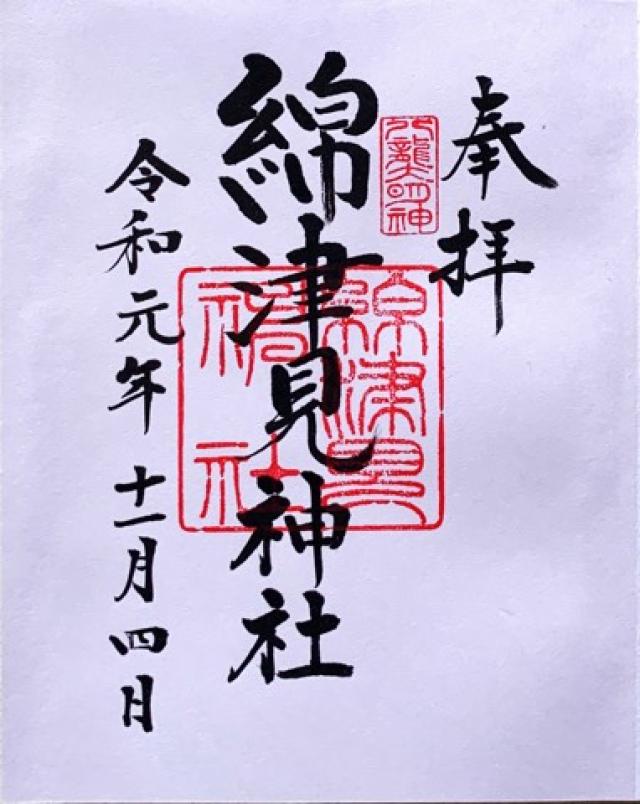 奉拝
八龍大明神
綿津見神社
綿津見
神社
令和元年十一月四日